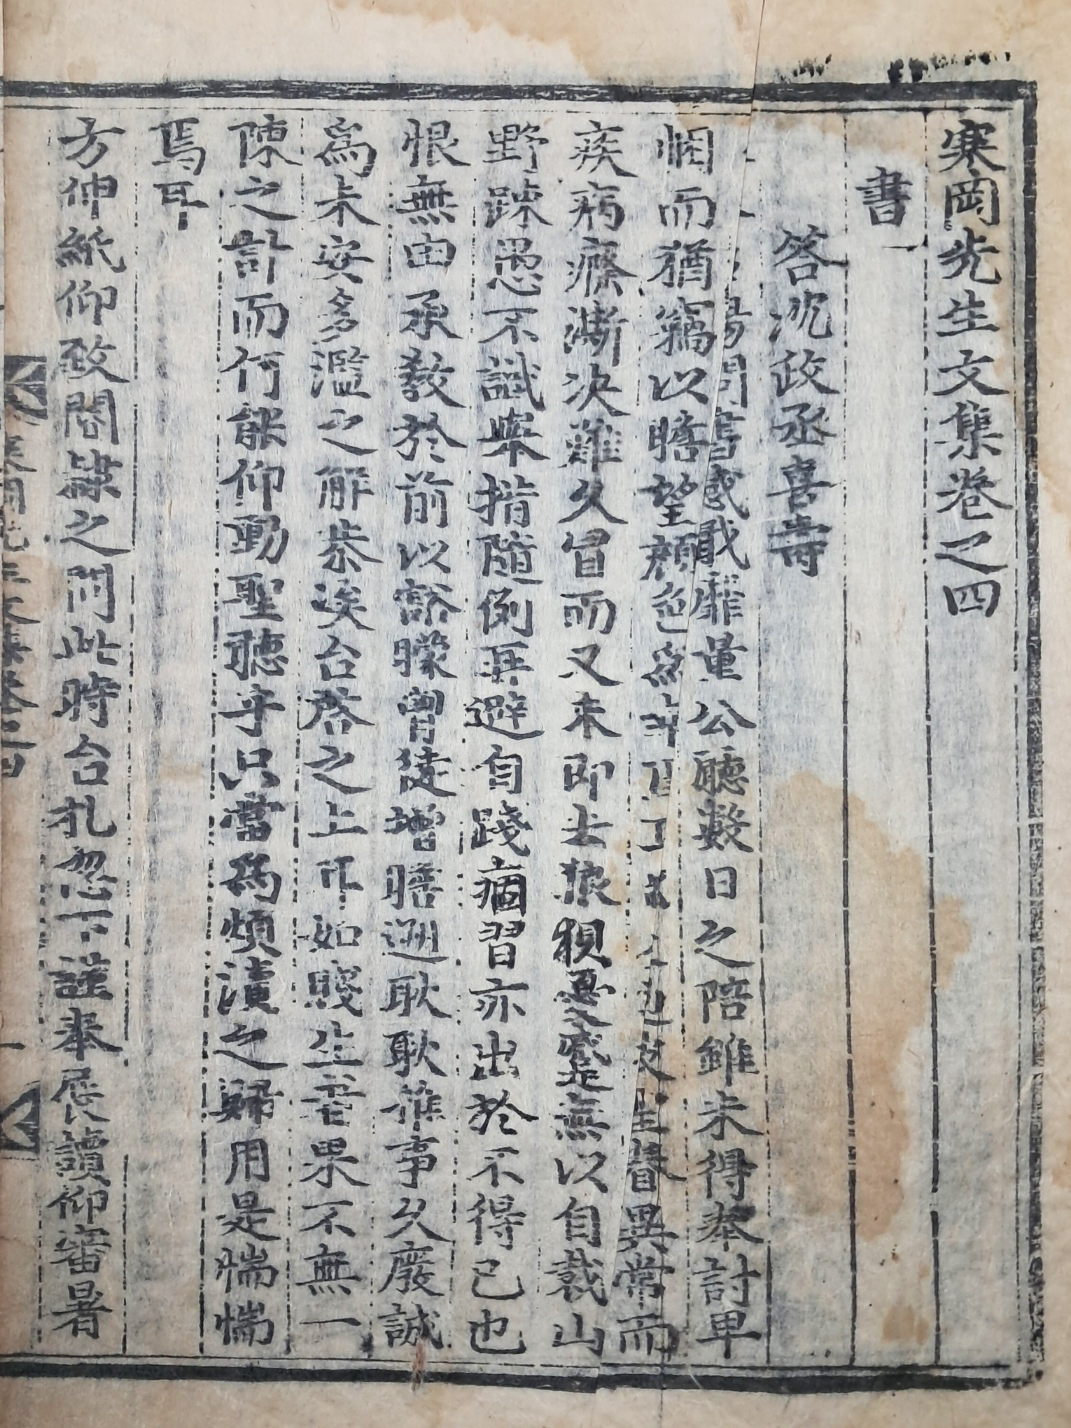 寒岡先生文集卷之四
書
答沈政丞喜壽
賜問書感戢靡量公聽數日之陪雖未得奉討卑
悃而猶竊以瞻望顔色爲 督異常而
疾病瘵漸决難久冒而又未卽去狼狽憂蹙無以自裁山
野踈愚不識擧措隨例再避自踐痼習亦出於不得已也
恨無由承敎於前以豁矇胷徒增瞻遡耿耿雒事久廢誠
爲未安多濫之解恭涘台啓之上耳如賤生者果不無一
陳之計而何能仰動聖聽乎只當爲煩瀆之歸用是惴惴
焉耳
方伸紙仰致閤隷之問此時台札忽下謹奉展讀仰審暑
寒岡先生文集卷之四
一